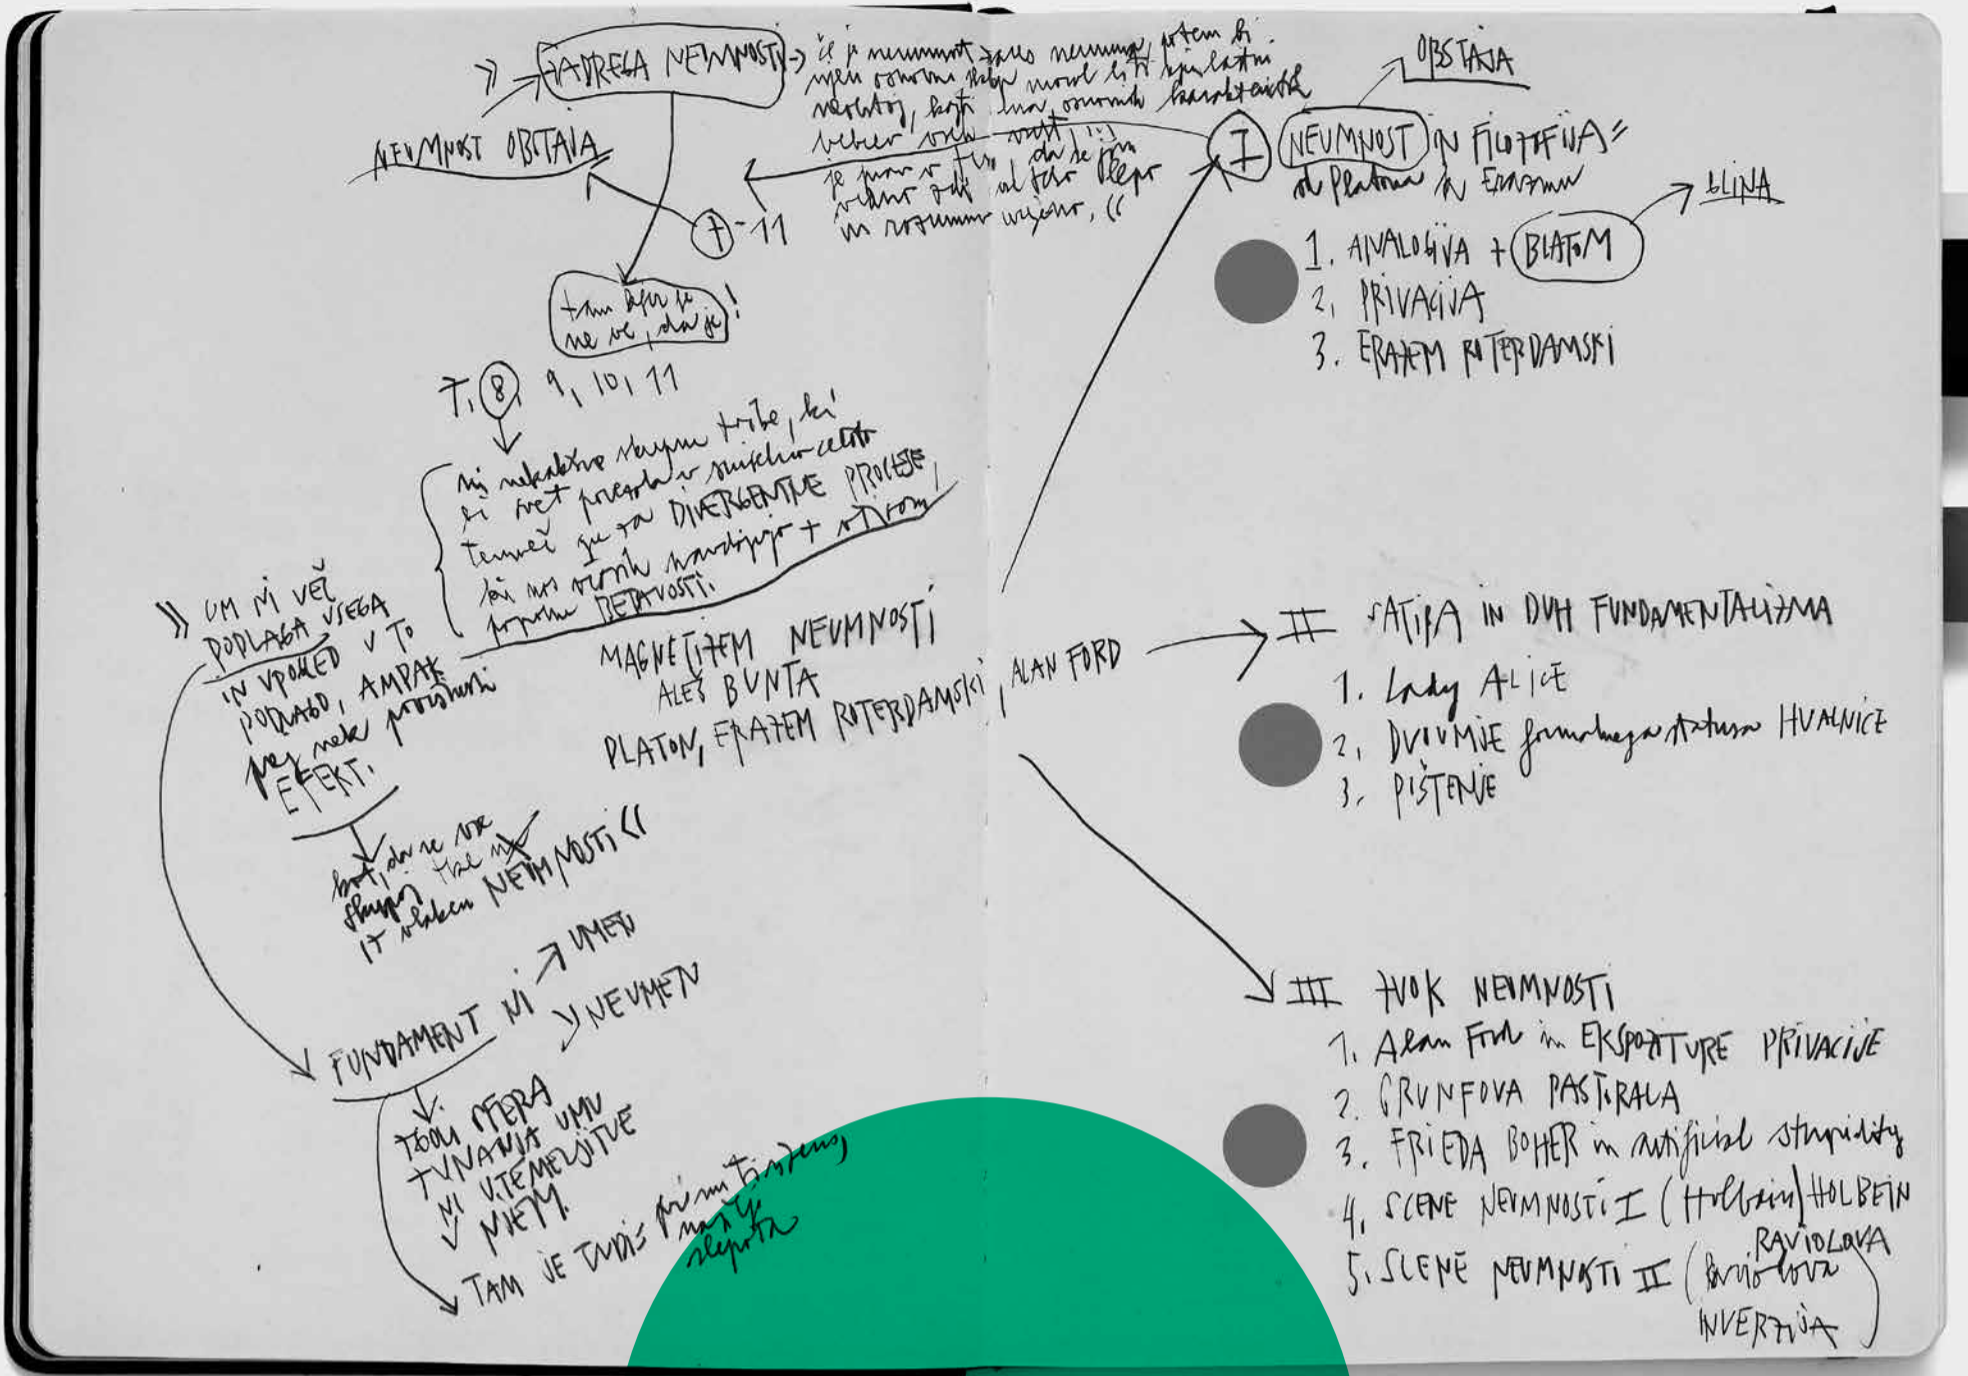 » ZADREGA NEUMNOSTI → če je neumnost zares neumna, potem bi
njen osnovni moral biti
neobstoj, kajti ena osnovnih karakteristik
bebcev vseh vrst
je prav v tem, da se jim
vedno zdi
in razumno urejeno. «
NEUMNOST OBSTAJA
7-11
tam kjer je
ne ve, da je!
7, 8, 9, 10, 11
ni nekakšno skupno , ki
bi svet povezala v smiselno celoto
temveč gre za DIVERGENTNE PROCESE,
ki nas navdajajo z
popolne BEDAVOSTI.
» UM NI VEČ
PODLAGA VSEGA
IN VPOGLED V TO
PODLAGO, AMPAK
prej nek površinski
EFEKT.
kot, da se vse
skupaj
iz vlaken NEUMNOSTI «
FUNDAMENT NI
UMEN
NEUMEN
SFERA
ZUNANJA UMU
NI UTEMELJITVE
V NJEM.
TAM JE TUDI
najlje
slepota
MAGNETIZEM NEUMNOSTI
ALEŠ BUNTA
PLATON, ERAZEM ROTERDAMSKI, ALAN FORD
OBSTAJA
I NEUMNOST IN FILOZOFIJA =
od Platona k Erazmu
GLINA
1. ANALOGIJA + BLATOM
2. PRIVACIJA
3. ERAZEM ROTERDAMSKI
II SATIRA IN DUH FUNDAMENTALIZMA
1. Lady ALICE
2. DVOUMJE formalnega statusa HVALNICE
3. PIŠTENJE
III ZVOK NEUMNOSTI
1. Alan Ford in EKSPOZITURE PRIVACIJE
2. GRUNFOVA PASTORALA
3. FRIEDA BOHER in artificial stupidity
4. SCENE NEUMNOSTI I (Holbein) HOLBEIN
5. SCENE NEUMNOSTI II (Raviolova
RAVIOLOVA
INVERZIJA)